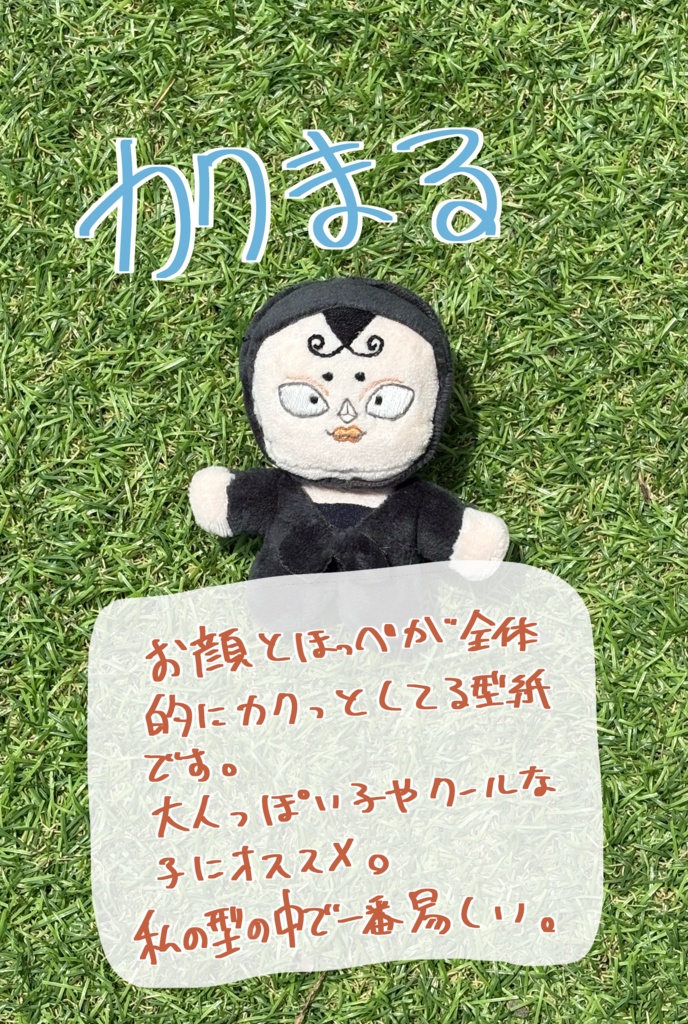 カクまる
お顔とほっぺが全体
的にカクっとしてる型紙
です。
大人っぽい子やクールな
子にオススメ。
私の型の中で一番易しい。